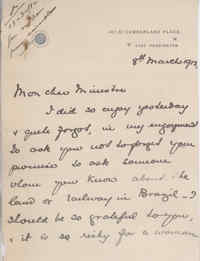 CUMBERLAND PLACE,
8th March 1912
Mon cher Ministre
I did so enjoy yesterday
& quite forgot, in my enjoyment
to ask you not to forget your
promise to ask someone
whom you know about the
land or railway in Brazil - I
should be so grateful to you,
& it is so risky for a woman